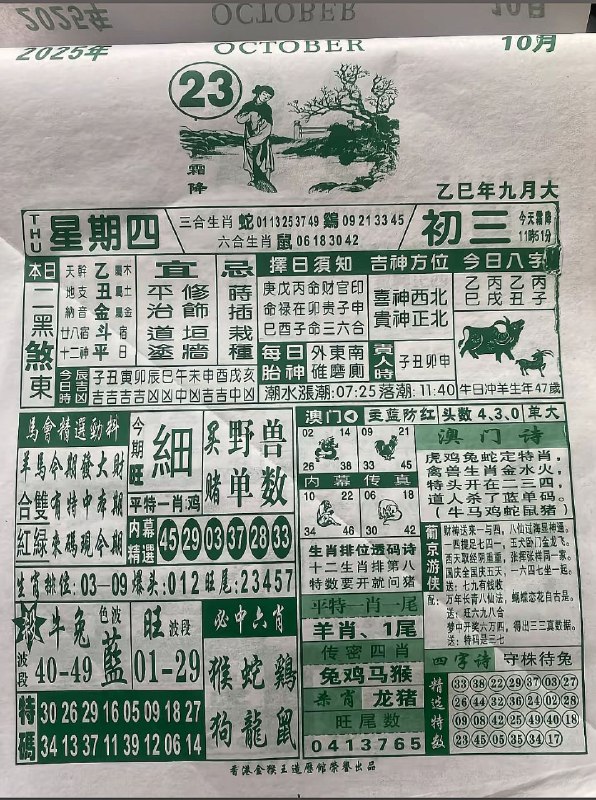 2025年 OCTOBER 10月
23
霜降
乙巳年九月大
THU 星期四
三合生肖 蛇 01 13 25 37 49 鷄 09 21 33 45
六合生肖 鼠 06 18 30 42
初三
今天霜降
11時51分
本日
二黑
煞東
天幹 乙 屬木
地支 丑 屬土
納音 金 屬金
廿八宿 斗 宿
十二神 平 日
宜
平治道塗
修飾垣牆
忌
蒔插栽種
擇日須知
庚戊丙命財官印
命祿在卯貴子申
巳酉子命三六合
吉神方位
喜神西北
貴神正北
今日八字
乙丙乙丙
巳戌丑子
今日時辰吉凶
子丑寅卯辰巳午未申酉戌亥
每日胎神
外東南
碓磨厠
貴人時
子丑卯申
潮水漲潮:07:25落潮:11:40
牛日冲羊生年47歲
馬會精選勁料
羊馬今期發大財
合雙有特中本期
紅緑來碼現今期
今期旺
細
平特一肖:鸡
买赌
野兽
单数
内幕精選
45 29 03 37 28 33
生肖排位:03-09 爆头:012 旺尾:23457
波段
牛兔
40-49
色波
藍
旺波段
01-29
必中六肖
猴蛇鷄
狗龍鼠
特碼
30 26 29 16 05 09 18 27
34 13 37 11 39 12 06 14
澳门
主蓝防红 头数4.3.0 单大
02 14
26 38
09 21
33 45
内幕传真
10 22
34 46
06 18
30 42
生肖排位透码诗
十二生肖排第八
特数要开就问猪
平特一肖一尾
羊肖、1尾
传密四肖
兔鸡马猴
杀肖 龙猪
旺尾数
0413765
澳门诗
虎鸡兔蛇定特肖,
禽兽生肖金水火,
特头开在二三四,
道人杀了蓝单码。
(牛马鸡蛇鼠猪)
葡京游侠
财神送来一与四, 八仙过海显神通,
一四提足七四一, 王大卧门金龙飞。
国庆全国庆五天, 一六四七坐一起。
送:七九有接收
配:万年长青八仙法, 蝴蝶恋花自古是。
送:旺六九八合
梦中开奖六万四, 得出三三真数据。
送:特码是三七
四字诗 守株待兔
精选特数
33 38 22 29 37 03 27
09 08 42 05 29 40 18
23 45 05 35 34 17
香港金猴王道歷館榮譽出品